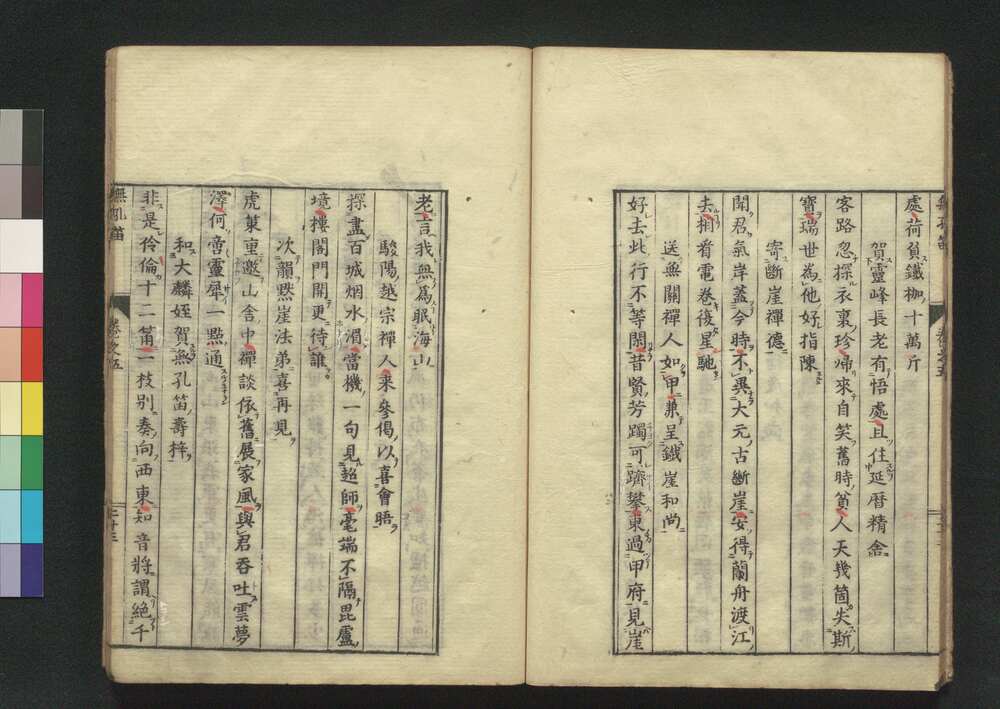 處荷負鐵枷十萬斤
賀靈峰長老有悟處且住延曆精舍
客路忽探衣裏珍帰來自笑舊時貧人天幾箇失斯
寶瑞世為他好指陳
寄斷崖禪德
聞君氣岸蓋今時不異大元古斷崖安得蘭舟渡江
去相看電卷後星馳
送無關禪人如甲兼呈鐵崖和尚
好去此行不等閑昔賢芳躅可躋攀東過甲府見崖
老言我無為眠海山
駿陽越宗禪人來參偈以喜會晤
探盡百城烟水濱當機一句見超師毫端不隔毘盧
境樓閣門開更待誰
次韻㸃崖法弟喜再見
虎菓重邀山舍中禪談依舊展家風與君吞吐雲夢
澤何啻靈犀一點通
和大麟姪賀無孔笛壽梓
非是伶倫十二筩一枝別奏向西東知音將謂絕千
無孔笛
卷之五